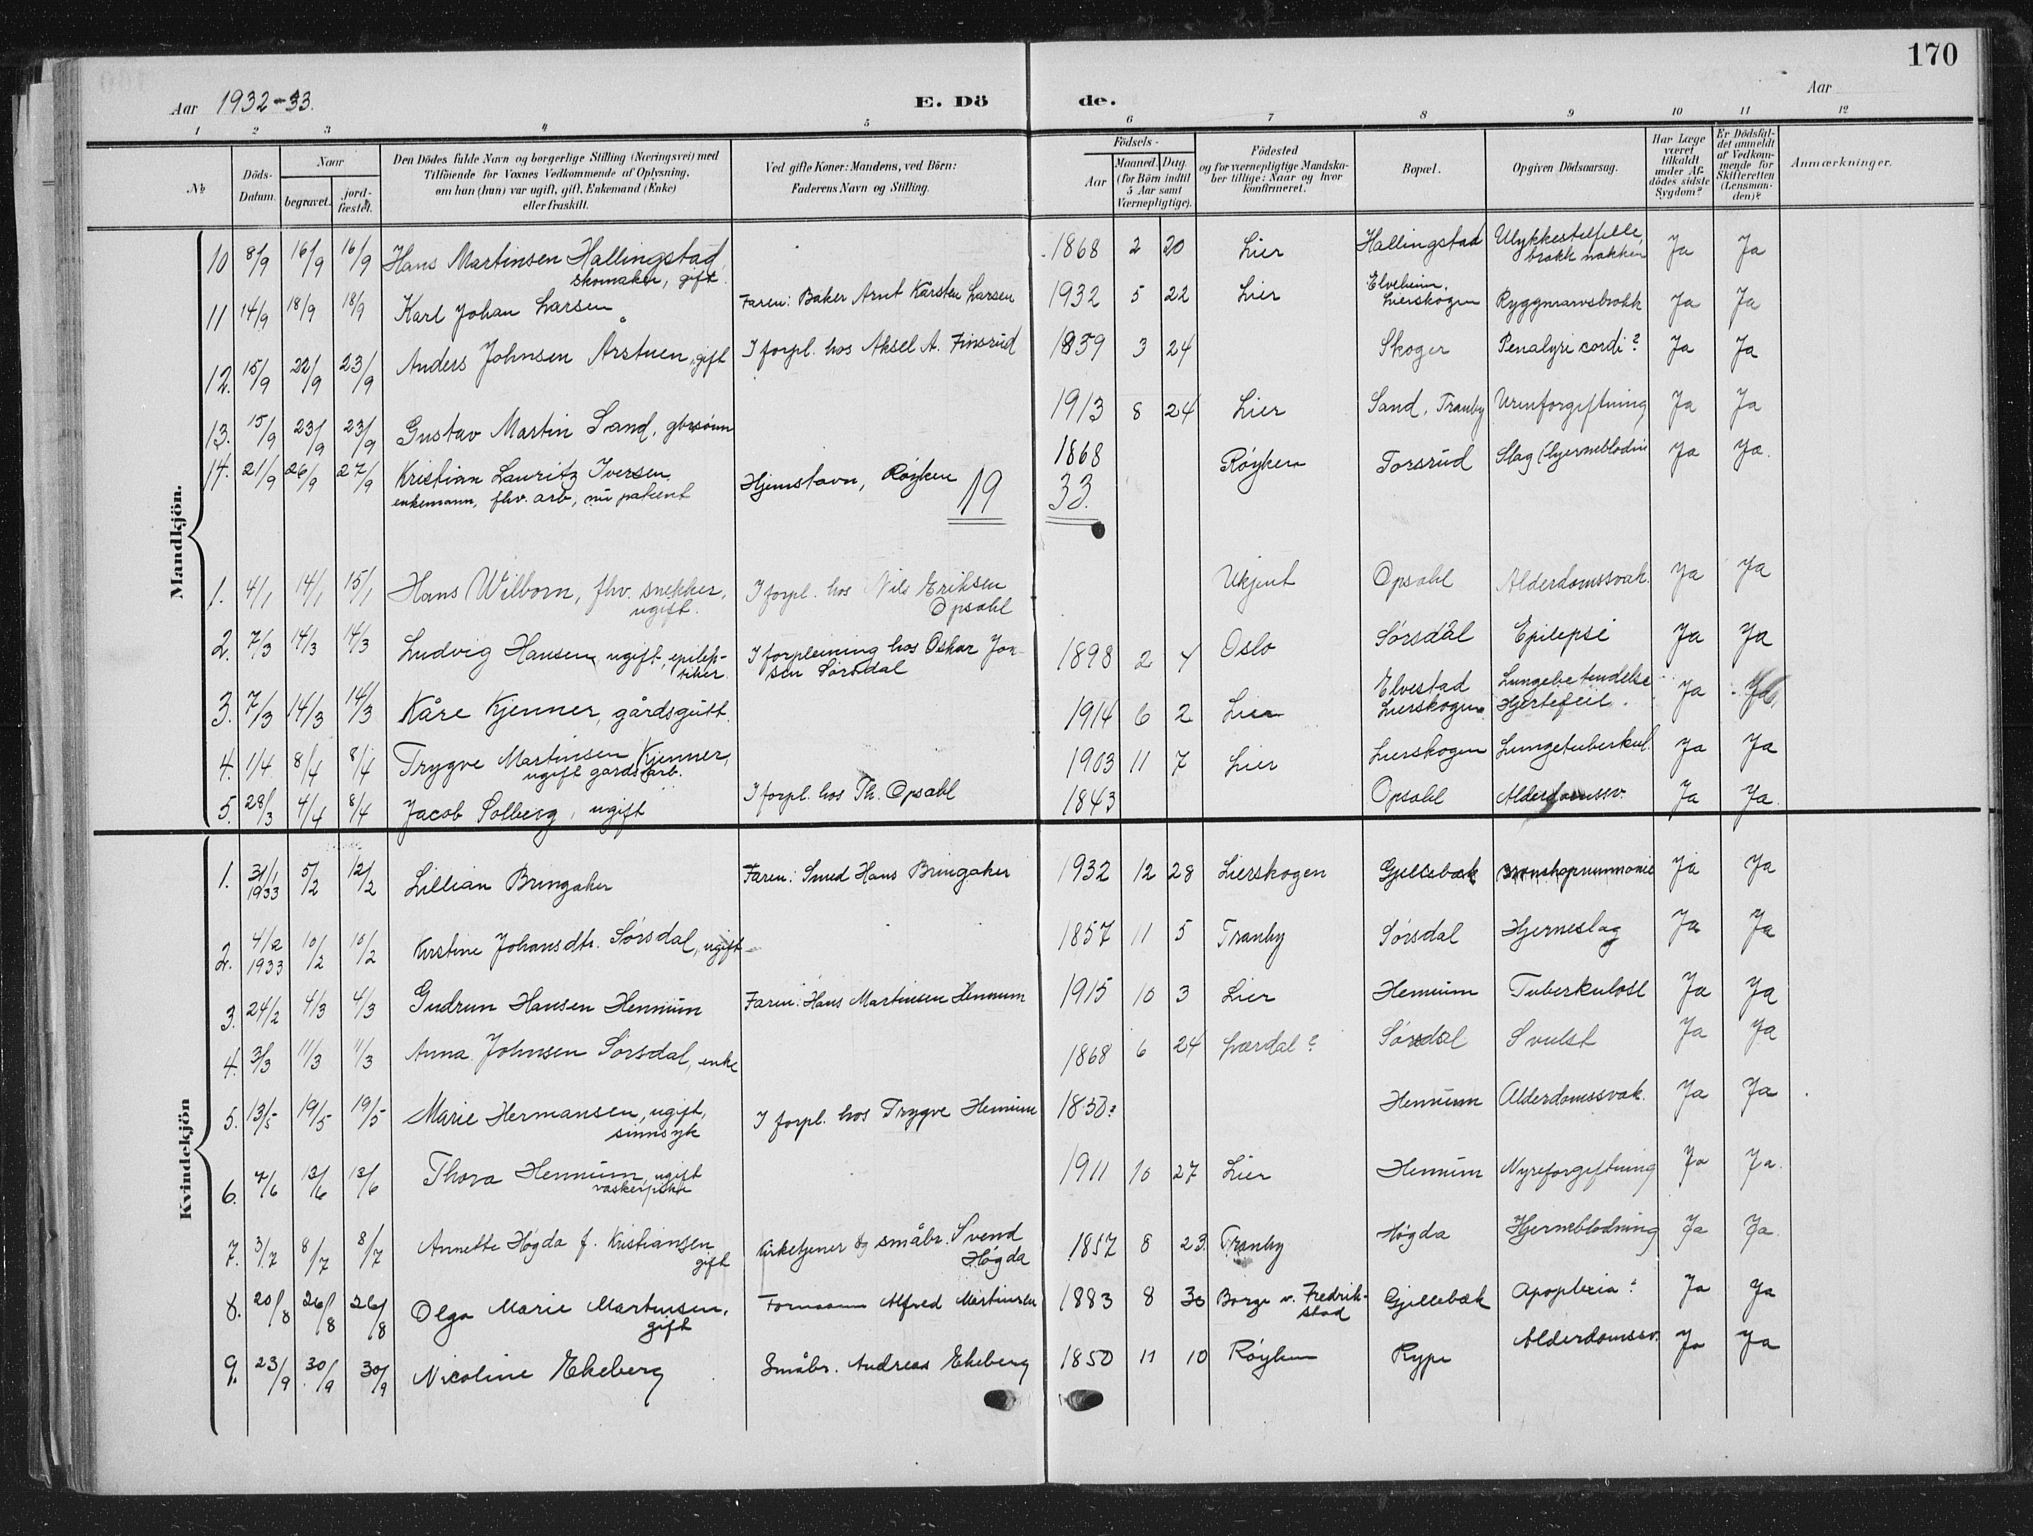 170
Aar 1932-33.
E. Dö de.
Aar
1 2 3 4 5 6 7 8 9 10 11 12
No
Döds-Datum.
Naar
begravet.
jordfæstet.
Den Dödes fulde Navn og borgerlige Stilling (Næringsvei) med
Tilföiende for Voxnes Vedkommende af Oplysning,
om han (hun) var ugift, gift, Enkemand (Enke)
eller fraskilt.
Ved gifte Koner: Mandens, ved Börn:
Faderens Navn og Stilling.
Födsels-
Aar
Maaned. Dag.
(for Börn indtil
5 Aar samt
Værnepligtige).
Födested
og for værnepligtige Mandskaber tillige: Naar og hvor
konfirmeret.
Bopæl.
Opgiven Dödsaarsag.
Har Læge
været
tilkaldt
under Afdödes sidste
Sygdom?
Er Dödsfaldet anmeldt
af Vedkommende for
Skifteretten
(Lensmanden)?
Anmærkninger.
Mandkjön.
10 8/9 16/9 16/9 Hans Martinsen Hallingstad 1868 2 20 Lier Hallingstad Ulykkestilfelle, Ja Ja
skomaker, gift. brakk nakken
11 14/9 18/9 18/9 Karl Johan Larsen Faren: Baker Arnt Karsten Larsen 1932 5 22 Lier Elveheim, Lierskogen Ryggmarvsbrokk Ja Ja
12. 15/9 22/9 23/9 Anders Johnsen Årstuen, gift I forpl. hos Aksel A. Finsrud 1859 3 24 Skoger cordi? Ja Ja
13. 15/9 23/9 23/9 Gustav Martin Sand, gbrsønn 1913 8 24 Lier Sand, Tranby Urinforgiftning Ja Ja
14. 21/9 26/9 27/9 Kristian Lauritz Iversen Hjemstavn, Røyken 1868 Røyken Torsrud Slag (hjerneblødn Ja Ja.
enkemann, fhv. arb, nu patient
19 33.
1. 4/1 14/1 15/1 Hans Wilborn, fhv. snekker, I forpl. hos Nils Eriksen Ukjent Opsahl Alderdomssvak. Ja Ja
ugift. Opsahl
2. 7/3 14/3 14/3 Ludvig Hansen, ugift, epilep- I forpleining hos Oskar Jon- 1898 2 4 Oslo Sørsdal Epilepsi Ja Ja
tiker. sen Sørsdal
3. 7/3 14/3 14/3 Kåre Kjenner, gårdsgutt. 1914 6 2 Lier Elvestad Lierskogen Lungebetendelse Hjertefeil. Ja Ja
4. 1/4 8/4 8/4 Trygve Martinsen Kjenner, 1903 11 7 Lier Lierskogen Lungetuberkul. Ja Ja
ugift gårdsarb.
5. 28/3 4/4 8/4 Jacob Solberg, ugift I forpl. hos Th. Opsahl 1843 Opsahl Alderdomssv. Ja Ja.
Kvindekjön
1. 31/1 1933 5/2 12/2 Lillian Bringaker Faren: Smed Hans Bringaker 1932 12 28 Lierskogen Gjellebæk Bronchopneumonie Ja Ja
2. 4/2 1933 10/2 10/2 Kirstine Johansdtr. Sørsdal, ugift 1857 11 5 Tranby Sørsdal Hjerneslag Ja Ja
3. 24/2 4/3 4/3 Gudrun Hansen Hennum Faren: Hans Martinsen Hennum 1915 10 3 Lier Hennum Tuberkulose Ja Ja
4. 3/3 11/3 11/3 Anna Johnsen Sørsdal, enke 1868 6 24 Sørsdal Svulst Ja Ja
5. 13/5 19/5 19/5 Marie Hermansen, ugift, I forpl. hos Trygve Hennum 1850? Hennum Alderdomssvak. Ja Ja
sinnsyk
6. 7/6 13/6 13/6 Thora Hennum, ugift 1911 10 27 Lier Hennum Nyreforgiftning Ja Ja.
7. 3/7 8/7 8/7 Annette Høgda f. Kristiansen Kirketjener og småbr. Svend 1857 8 23. Tranby Høgda Hjerneblødning Ja Ja.
gift Høgda
8. 20/8 26/8 26/8 Olga Marie Martinsen, Formann Alfred Martinsen 1883 8 30 Borge v. Fredrik- Gjellebæk Apoplexia? Ja Ja
gift stad
9. 23/9 30/9 30/9 Nicoline Ekeberg Småbr. Andreas Ekeberg 1850 11 10 Røyken Rype Alderdomssv. Ja Ja